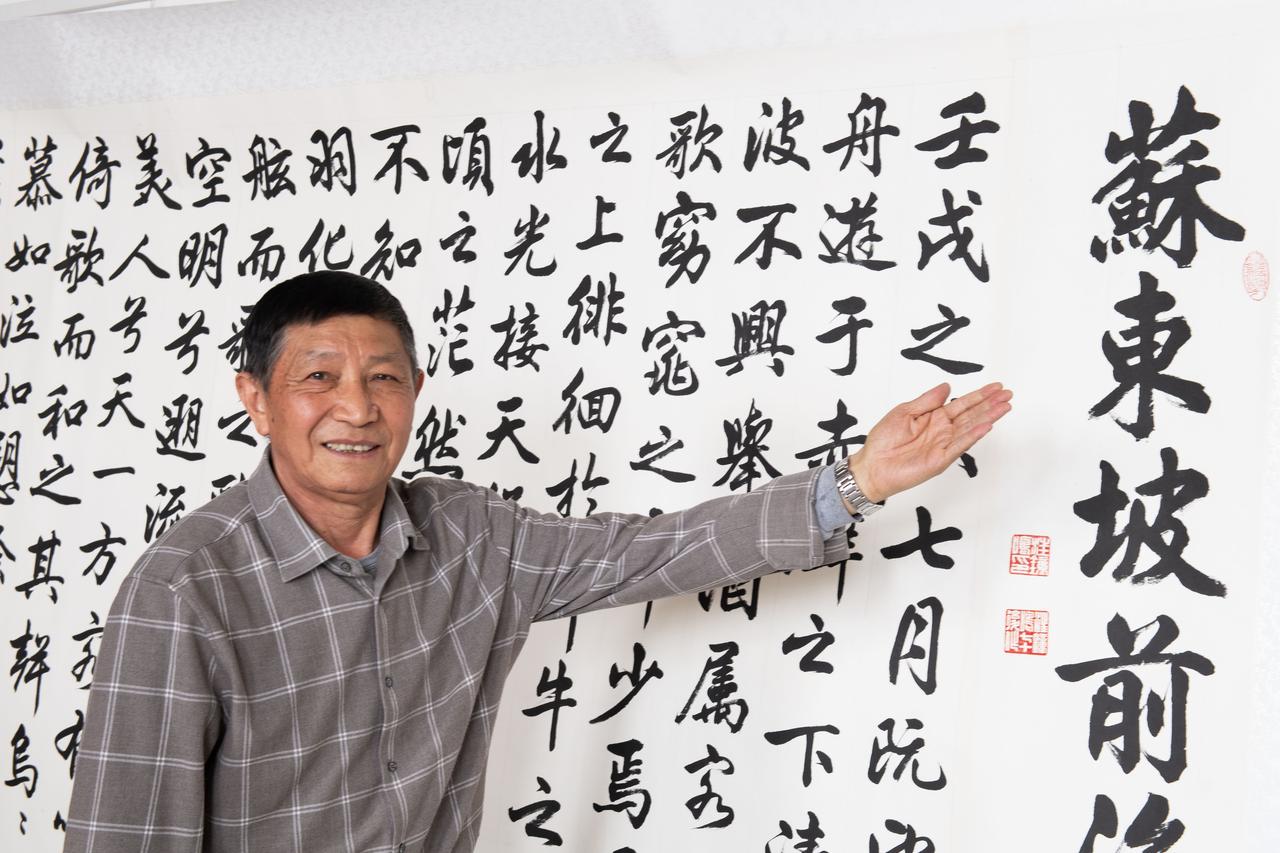 蘇東坡前後
壬戌之七月既望
舟遊于赤壁之下清
波不興舉酒屬客
歌窈窕之少焉
之上徘徊於斗牛之
水光接天
頃之茫然
不知
羽化
舷而歌之歌
空明兮遡流
美人兮天一方客有
倚歌而和之其聲烏〻
慕如泣如訴餘